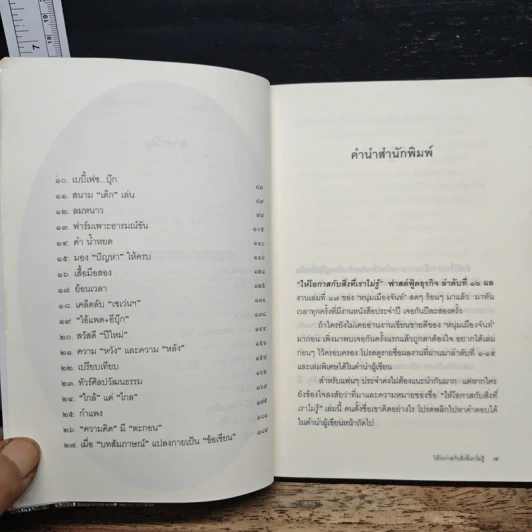 ๑๐. เบบี้เฟซ...บุ๊ก
๑๑. สนาม “เด็ก” เล่น
๑๒. ลมหนาว
๑๓. ฟาร์มเพาะอารมณ์ขัน ๑๐๕
๑๔. ดำ น้ำหยด
๑๕. มอง “ปัญหา” ให้ครบ
๑๖. เสื้อมือสอง ๑๒๑
๑๗. ย้อนเวลา
๑๘. เคล็ดลับ “เซเว่นฯ”
๑๙. “ไอ้แพด+อีบุ๊ก”
๒๐. สวัสดี “ปีใหม่”
๒๑. ความ “หวัง” และความ “หลัง”
๒๒. เปรียบเทียบ
๒๓. ทัวร์ศิลปวัฒนธรรม
๒๔. “ใกล้” แต่ “ไกล”
๒๕. กำแพง
๒๖. “ความคิด” มี “ตะกอน”
๒๗. เมื่อ “บทสัมภาษณ์” แปลงกายเป็น “ข้อเขียน”
คำนำสำนักพิมพ์
“ให้โอกาสกับสิ่งที่เราไม่รู้” ฟาสต์ฟู้ดธุรกิจ ลำดับที่ ๑๖ ผล
งานเล่มที่ ๑๗ ของ ‘หนุ่มเมืองจันท์’ สดๆ ร้อนๆ มาแล้ว มาทัน
เวลาทุกครั้งที่มีงานหนังสือประจำปี เจอกันปีละสองครั้ง
ถ้าใครยังไม่เคยอ่านงานเขียนขายดีของ ‘หนุ่มเมืองจันท์’
มาก่อน เพิ่งมาพบเจอกันครั้งแรกแล้วถูกตาต้องใจ อยากได้เล่ม
ก่อนๆ ไว้ครอบครอง โปรดดูรายชื่อผลงานที่ผ่านมาลำดับที่ ๑-๑๕
และเล่มพิเศษได้ในคำนำผู้เขียน
สำหรับแฟนๆ ประจำคงไม่ต้องแนะนำกันมาก แต่หากใคร
ยังข้องใจสงสัยว่าที่มาและความหมายของชื่อ “ให้โอกาสกับสิ่ง
ที่เราไม่รู้” เล่มนี้ คนตั้งชื่อเขาคิดอย่างไร โปรดพลิกไปหาคำตอบได้
ในคำนำผู้เขียนหน้าถัดไป
ให้โอกาสกับสิ่งที่เราไม่รู้ ๗